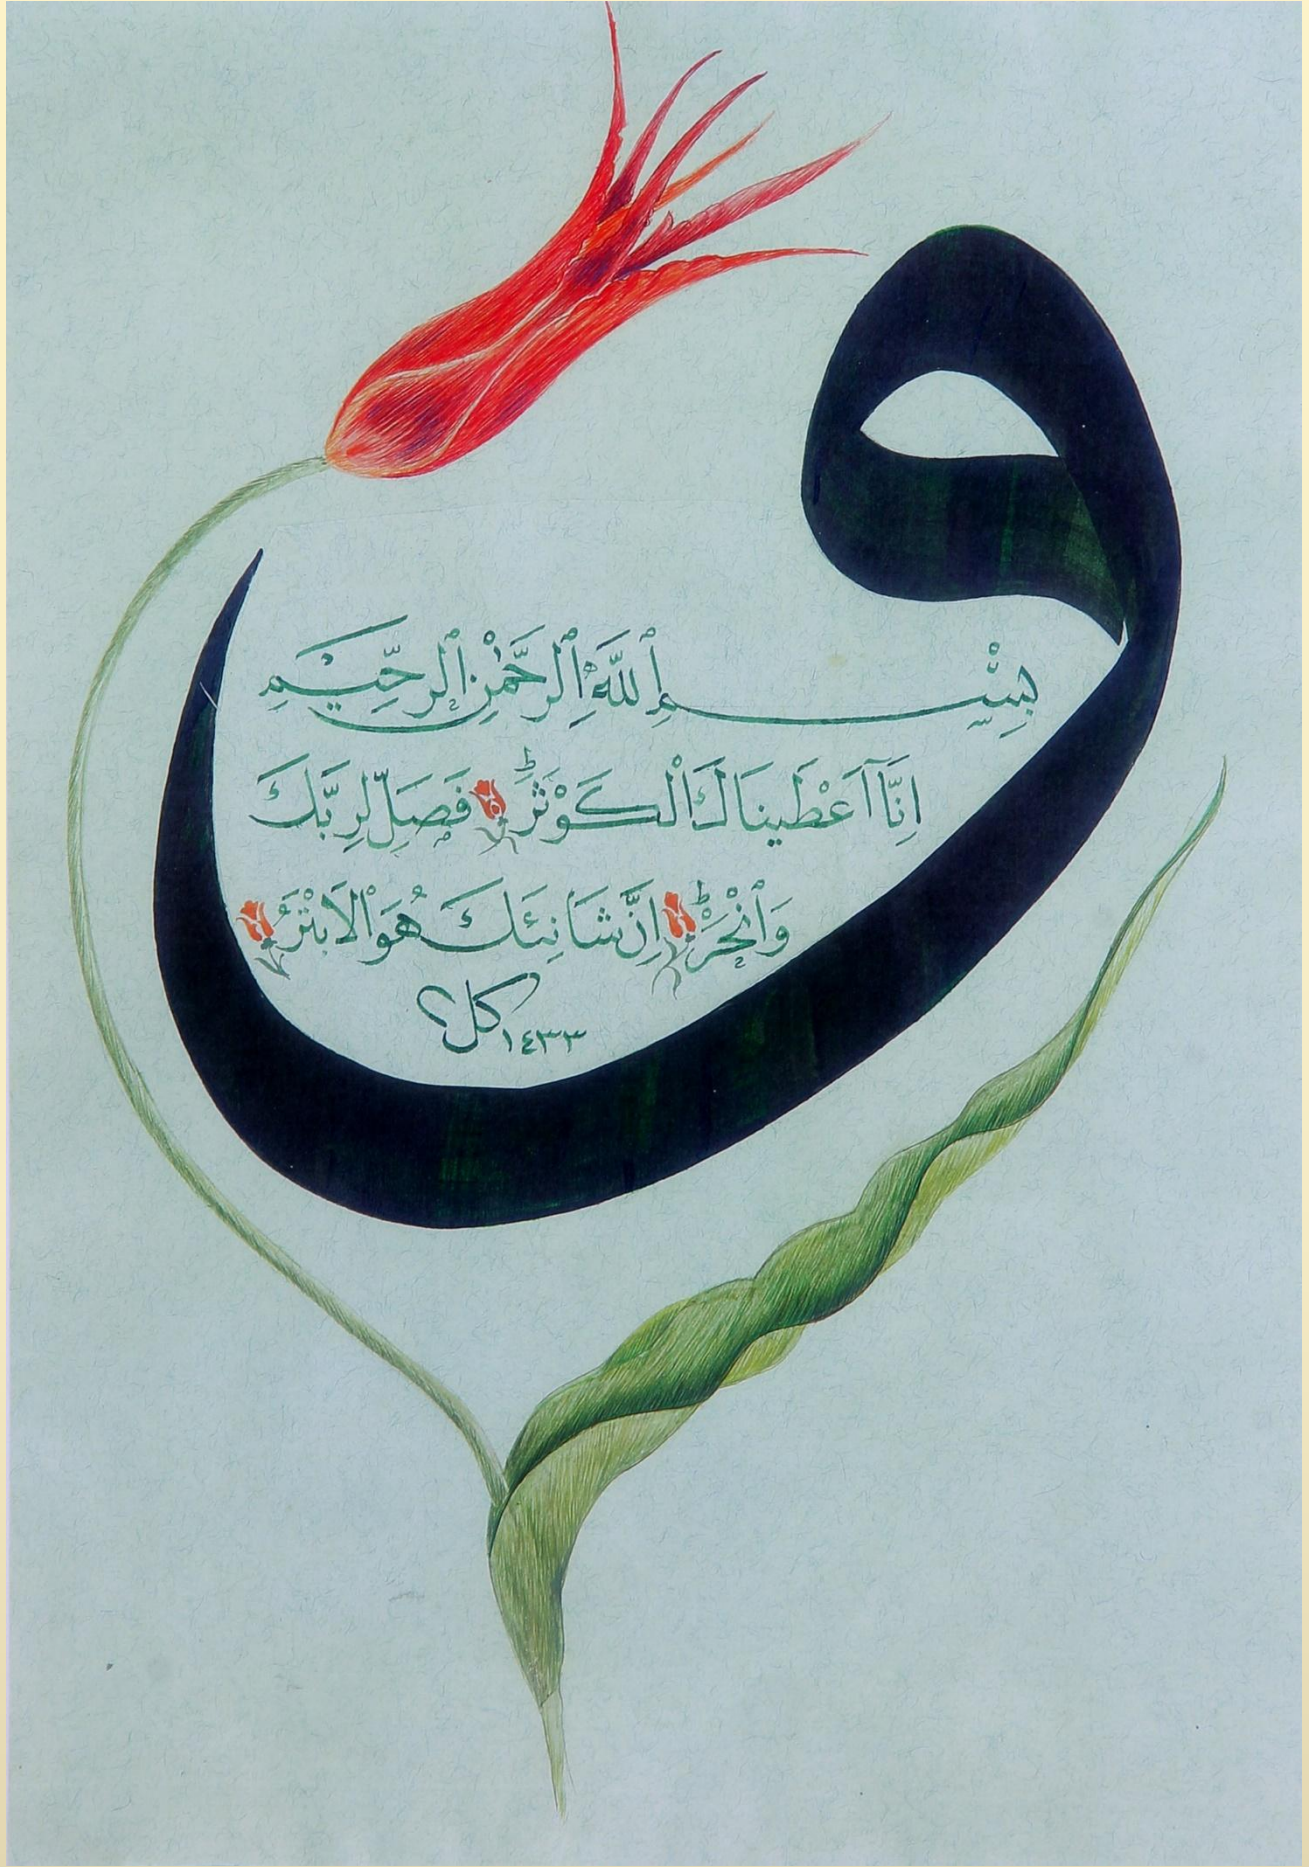 و
بِسْمِ ٱللَّهِ ٱلرَّحْمٰنِ ٱلرَّحِيْمِ
اِنَّآ اَعْطَينَاكَ ٱلْكَوْثَرَۜ فَصَلِّ لِرَبِّكَ
وَٱنْحَرْۜ اِنَّ شَانِئَكَ هُوَ ٱلاَبْتَرُ
١٤٣٣